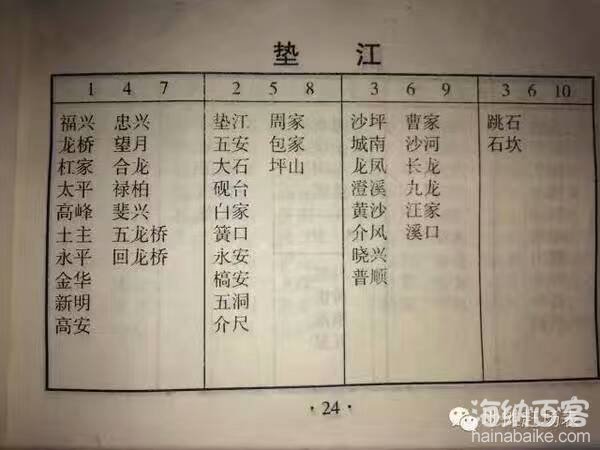 垫 江
1 4 7 2 5 8 3 6 9 3 6 10
福兴 忠兴 垫江 周家 沙坪 曹家 跳石
龙桥 望月 五安 包家 城南 沙河 石坎
杠家 合龙 大石 坪山 龙凤 长龙
太平 禄柏 砚台 澄溪 九龙
高峰 斐兴 白家 黄沙 汪家
土主 五龙桥 簧口 介风 溪口
永平 回龙桥 永安 晓兴
金华 槁安 普顺
新明 五洞
高安 介尺
·24·
海纳百客
hainabaike.com